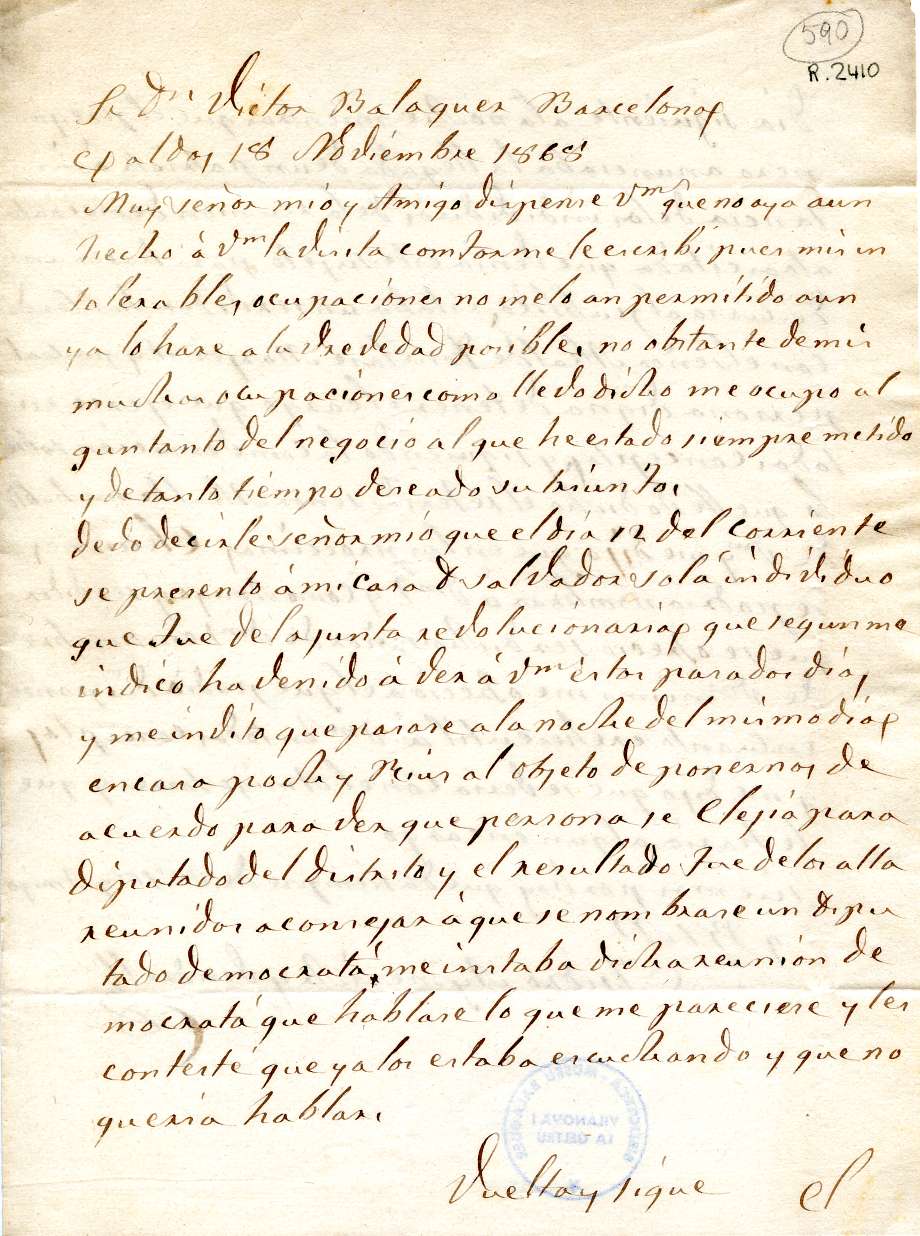 590
R.2410
Sr Dn Victor Balaguer Barcelona
18 Nodiembre 1868
Muy señor mio y Amigo dispense Vm que no aya aun
hecho á Vm la disita comforme le escribi pues mis in
talerables ocupaciones no melo an permitido aun
ya lo hare a la dredeDad posible, no obstante de mis
muchas ocupaciones como lledo dicho me ocupo al
gun tanto del negocio al que he estado siempre metido
y de tanto tiempo deseado su triunfo,
dedo decirle señor mio que el dia 12 del corriente
se presento á mi casa Dn Saldador Solá indididuo
que fue de la junta redolucionaria que segun me
indico ha denido á der á Vm estos pasados dias
y me indito que pasase a la noche del mismo dia
en casa poch y Rius al objeto de ponernos de
acuerdo para der que persona se Elejia para
diputado del distrito y el resultado fue de los alla
reunidos aconsejar á que se nombrase un dipu
tado democratá, me instaba dicha reunion de
mocratá que hablase lo que me pareciese y les
contesté que ya los estaba escuchando y que no
queria hablar,
BIBLIOTECA MUSEU BALAGUER
VILANOVA I
LA GELTRÚ
Vuelta y sigue el